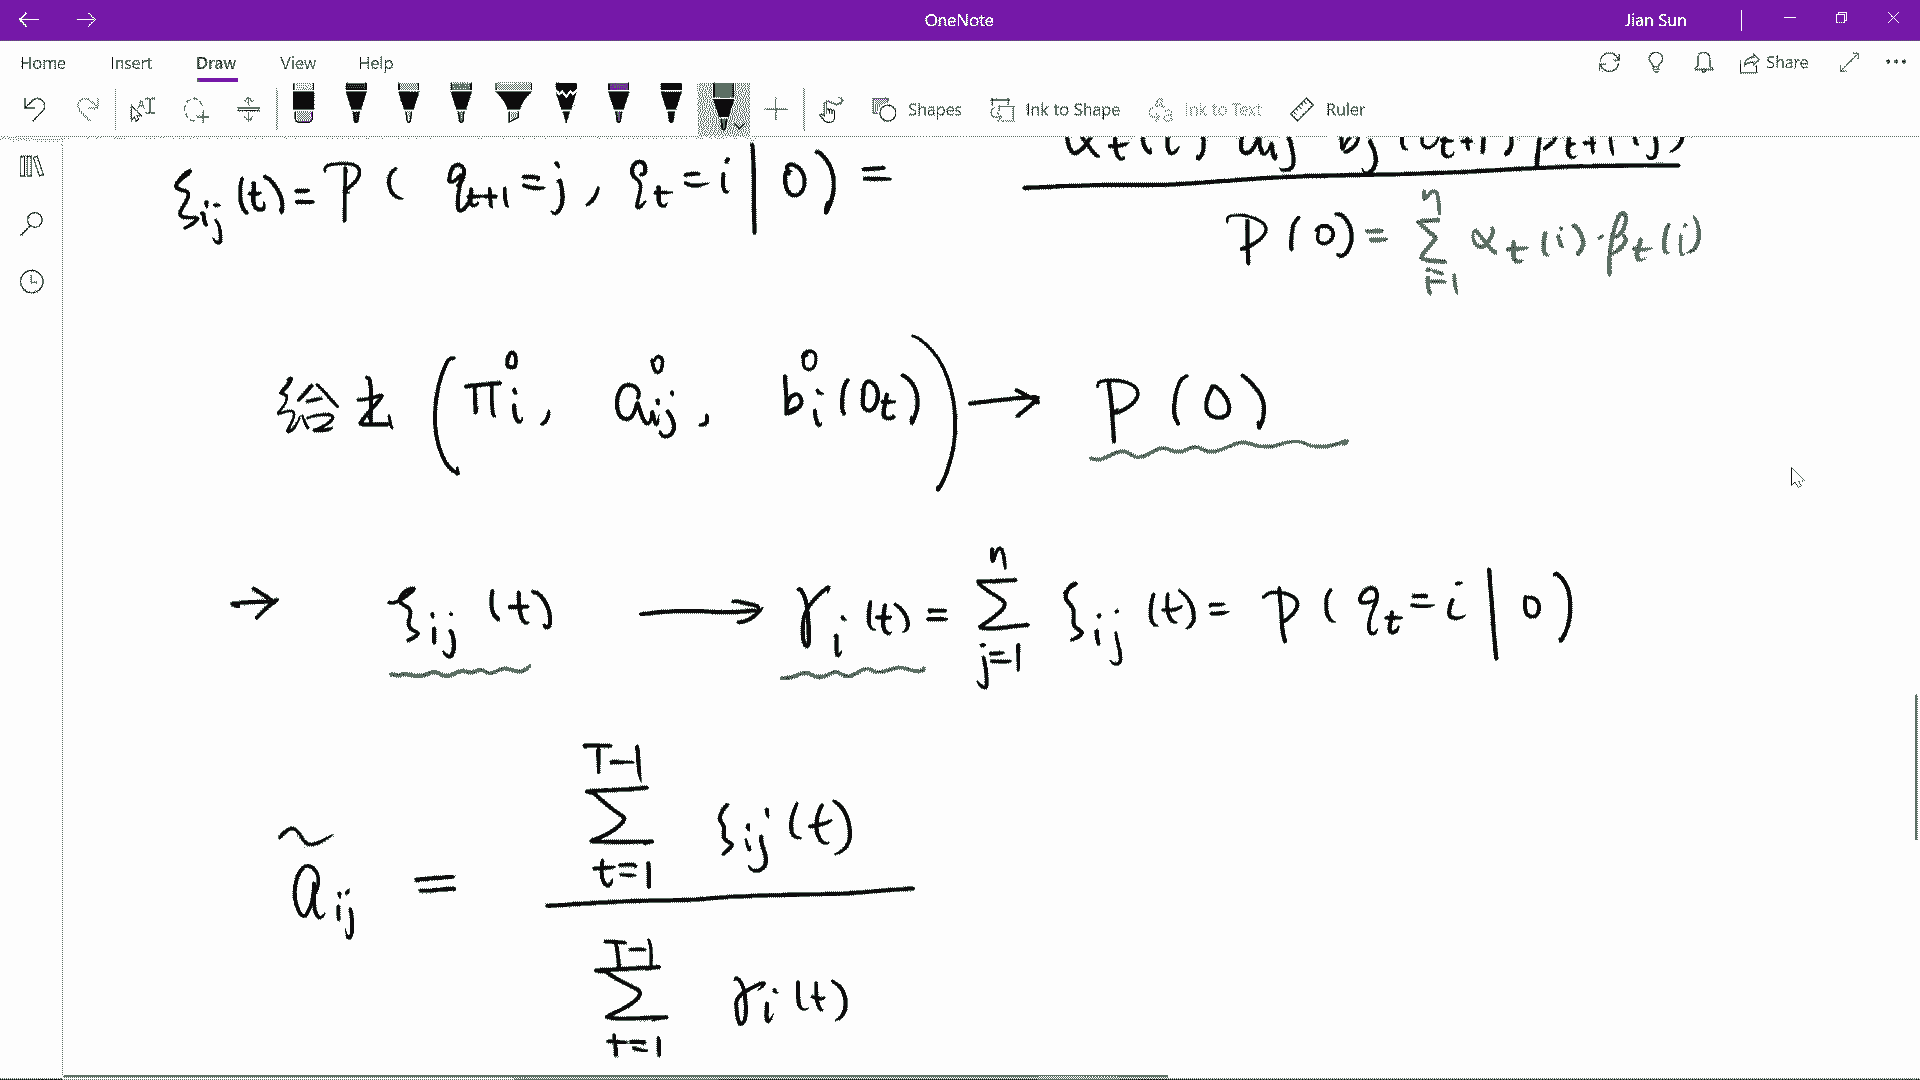 OneNote
Jian Sun
Home Insert Draw View Help
Share
Shapes Ink to Shape Ink to Text Ruler
αt(i) aij bj(Ot+1) βt+1(j)
ξij(t) = P( qt+1=j, qt=i | O ) =
P(O) = Σ_{i=1}^{n} αt(i)·βt(i)
给出 ( πi⁰, aij⁰, bi⁰(Ot) ) → P(O)
→ ξij(t) → γi(t) = Σ_{j=1}^{n} ξij(t) = P( qt=i | O )
ãij = Σ_{t=1}^{T-1} ξij(t)
Σ_{t=1}^{T-1} γi(t)